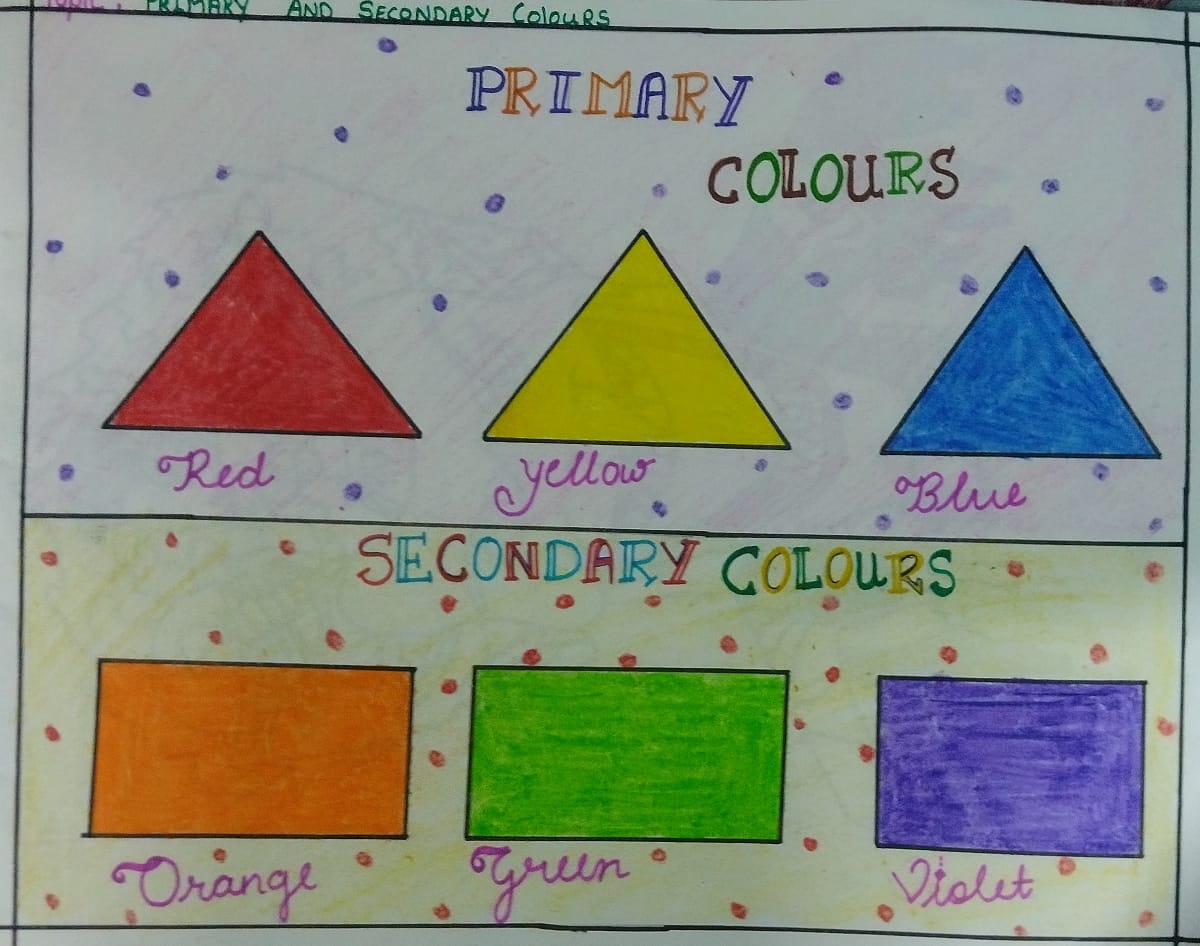 Topic : PRIMARY AND SECONDARY COLOURS
PRIMARY
COLOURS
Red yellow Blue
SECONDARY COLOURS
Orange Green Violet